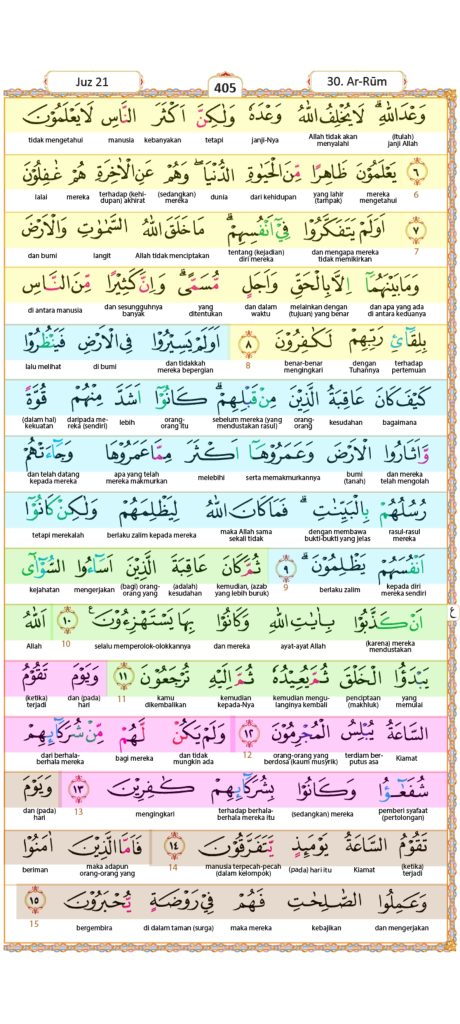 Juz 21
405
30. Ar-Rūm
وَعْدَ اللّٰهِ ۗ لَا يُخْلِفُ اللّٰهُ وَعْدَهٗ وَلٰكِنَّ اَكْثَرَ النَّاسِ لَا يَعْلَمُوْنَ
(itulah) janji Allah Allah tidak akan menyalahi janji-Nya tetapi kebanyakan manusia tidak mengetahui
٦ يَعْلَمُوْنَ ظَاهِرًا مِّنَ الْحَيٰوةِ الدُّنْيَا ۖ وَهُمْ عَنِ الْاٰخِرَةِ هُمْ غٰفِلُوْنَ
6 mereka mengetahui yang lahir (tampak) dari kehidupan dunia (sedangkan) mereka terhadap (kehidupan) akhirat mereka lalai
٧ اَوَلَمْ يَتَفَكَّرُوْا فِيْٓ اَنْفُسِهِمْ ۗ مَا خَلَقَ اللّٰهُ السَّمٰوٰتِ وَالْاَرْضَ
7 dan mengapa mereka tidak memikirkan tentang (kejadian) diri mereka Allah tidak menciptakan langit dan bumi
وَمَا بَيْنَهُمَآ اِلَّا بِالْحَقِّ وَاَجَلٍ مُّسَمًّى ۗ وَاِنَّ كَثِيْرًا مِّنَ النَّاسِ
dan apa yang ada di antara keduanya melainkan dengan (tujuan) yang benar dan dalam waktu yang ditentukan dan sesungguhnya banyak di antara manusia
بِلِقَاۤئِ رَبِّهِمْ لَكٰفِرُوْنَ ٨ اَوَلَمْ يَسِيْرُوْا فِى الْاَرْضِ فَيَنْظُرُوْا
terhadap pertemuan dengan Tuhannya benar-benar mengingkari 8 dan tidakkah mereka bepergian di bumi lalu melihat
كَيْفَ كَانَ عَاقِبَةُ الَّذِيْنَ مِنْ قَبْلِهِمْ ۗ كَانُوْٓا اَشَدَّ مِنْهُمْ قُوَّةً
bagaimana kesudahan orang-orang sebelum mereka (yang mendustakan rasul) orang-orang itu lebih daripada mereka (sendiri) (dalam hal) kekuatan
وَّاَثَارُوا الْاَرْضَ وَعَمَرُوْهَآ اَكْثَرَ مِمَّا عَمَرُوْهَا وَجَاۤءَتْهُمْ
dan mereka telah mengolah bumi (tanah) serta memakmurkannya melebihi apa yang telah mereka makmurkan dan telah datang kepada mereka
رُسُلُهُمْ بِالْبَيِّنٰتِ ۗ فَمَا كَانَ اللّٰهُ لِيَظْلِمَهُمْ وَلٰكِنْ كَانُوْٓا
rasul-rasul mereka dengan membawa bukti-bukti yang jelas maka Allah sama sekali tidak berlaku zalim kepada mereka tetapi merekalah
اَنْفُسَهُمْ يَظْلِمُوْنَ ۗ ٩ ثُمَّ كَانَ عَاقِبَةَ الَّذِيْنَ اَسَاۤءُوا السُّوْۤآٰى
kepada diri mereka sendiri berlaku zalim 9 kemudian, (azab yang lebih buruk) (adalah) kesudahan (bagi) orang-orang yang mengerjakan kejahatan
اَنْ كَذَّبُوْا بِاٰيٰتِ اللّٰهِ وَكَانُوْا بِهَا يَسْتَهْزِءُوْنَ ࣖ ١٠ اَللّٰهُ
ع
(karena) mereka mendustakan ayat-ayat Allah dan mereka selalu memperolok-olokkannya 10 Allah
يَبْدَؤُا الْخَلْقَ ثُمَّ يُعِيْدُهٗ ثُمَّ اِلَيْهِ تُرْجَعُوْنَ ١١ وَيَوْمَ تَقُوْمُ
yang memulai penciptaan (makhluk) kemudian mengulanginya kembali kemudian kepada-Nya kamu dikembalikan 11 dan (pada) hari (ketika) terjadi
السَّاعَةُ يُبْلِسُ الْمُجْرِمُوْنَ ١٢ وَلَمْ يَكُنْ لَّهُمْ مِّنْ شُرَكَاۤىِٕهِمْ
Kiamat terdiam berputus asa orang-orang yang berdosa (kaum musyrik) 12 dan tidak mungkin ada bagi mereka dari berhala-berhala mereka
شُفَعٰۤؤُا وَكَانُوْا بِشُرَكَاۤىِٕهِمْ كٰفِرِيْنَ ١٣ وَيَوْمَ
pemberi syafaat (pertolongan) (sedangkan) mereka terhadap berhala-berhala mereka itu mengingkari 13 dan (pada) hari
تَقُوْمُ السَّاعَةُ يَوْمَىِٕذٍ يَّتَفَرَّقُوْنَ ١٤ فَاَمَّا الَّذِيْنَ اٰمَنُوْا
(ketika) terjadi Kiamat (pada) hari itu manusia terpecah-pecah (dalam kelompok) 14 maka adapun orang-orang yang beriman
وَعَمِلُوا الصّٰلِحٰتِ فَهُمْ فِيْ رَوْضَةٍ يُّحْبَرُوْنَ ١٥
dan mengerjakan kebajikan maka mereka di dalam taman (surga) bergembira 15